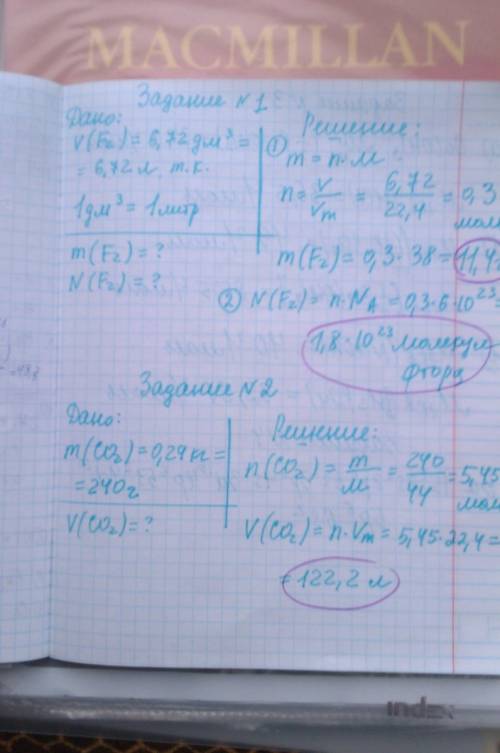 MACMILLAN
Задание №1
Дано:
V(F₂) = 6,72 дм³ =
= 6,72 л, т.к.
1дм³ = 1литр
m(F₂) = ?
N(F₂) = ?
Решение:
① m = n·M
n = V/Vm = 6,72/22,4 = 0,3
мол
m(F₂) = 0,3·38 = 11,4г
② N(F₂) = n·NA = 0,3·6·10²³
1,8·10²³ молекул
фтора
Задание №2
Дано:
m(CO₂) = 0,24кг =
= 240г
V(CO₂) = ?
Решение:
n(CO₂) = m/M = 240/44 = 5,45
мол
V(CO₂) = n·Vm = 5,45·22,4 =
= 122,2 л
index